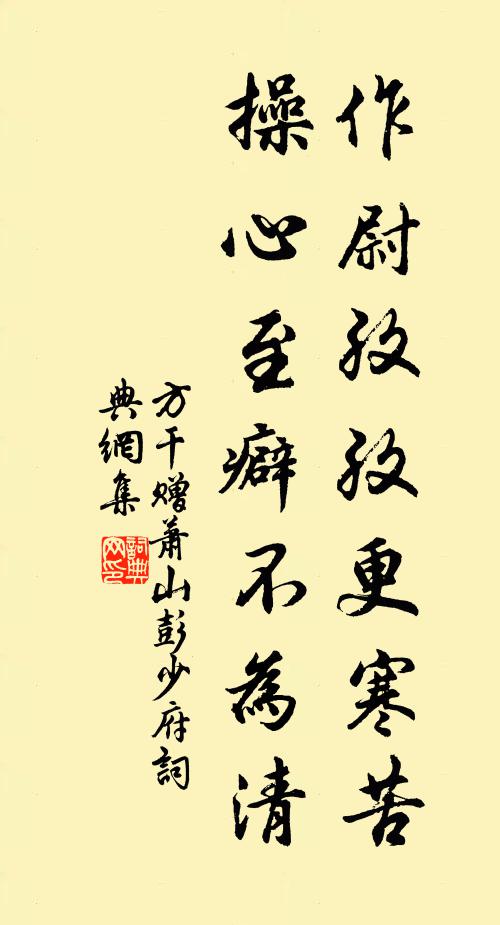 作尉孜孜更寒苦
操心至癖不為清
方干赠萧山彭少府詞
典網集
詞典
网印